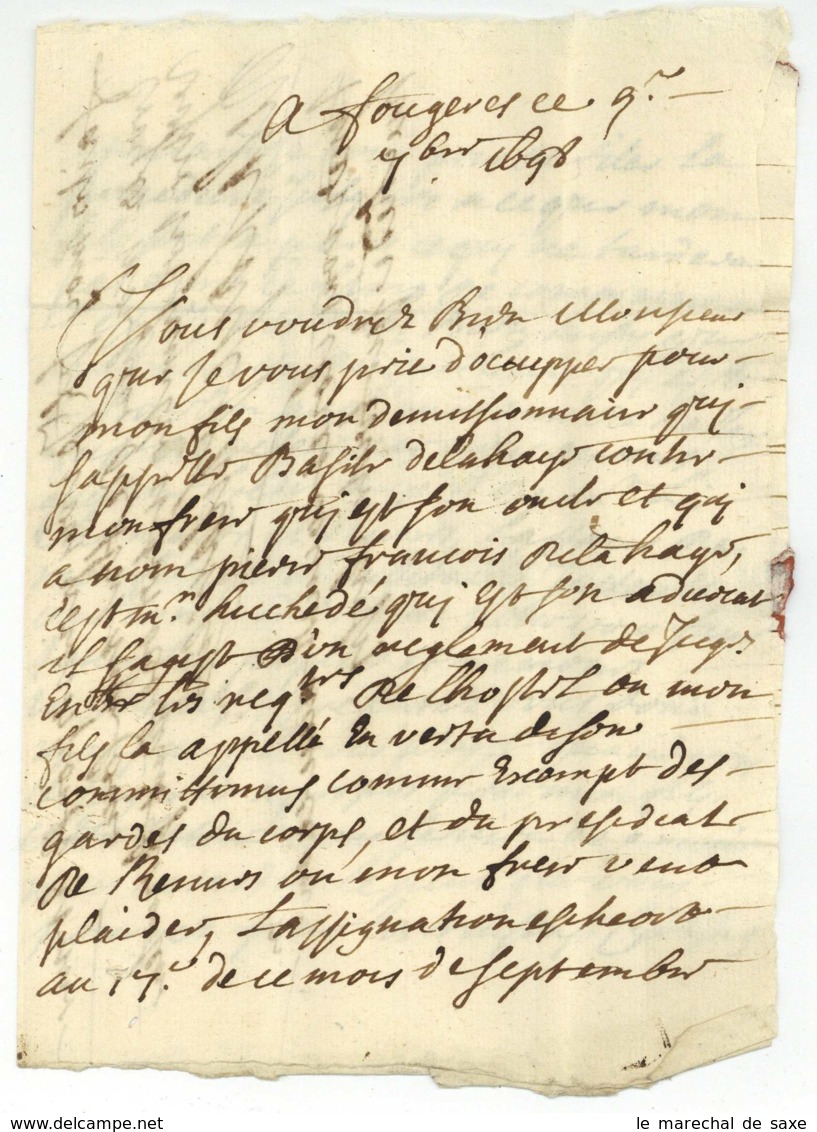 A fougeres ce 9.e
7bre 1698
Vous voudrez Bien Monsieur
que Je vous prie docupper pour
mon fils mon demissionnaire qui
sappelle Basile delahaye contre
mon frere qui est son oncle et qui
a nom pierre francois Delahaye,
cest mr. huchedé qui est son advocat
il sagist d'un reglement de Juges
Entre les reqtes De lhostel ou mon
fils la appellé En vertu de son
committimus comme Exempt des
gardes du corps, et du presidial
De Rennes ou mon frere veut
plaider, Lassignation escheoit
au 17.e de ce mois de septembre
le marechal de saxe